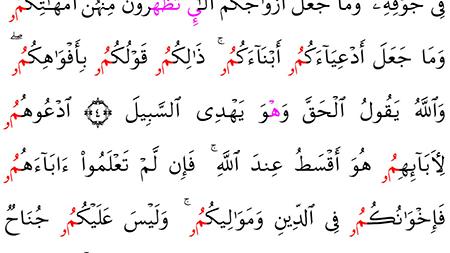 فِي جَوْفِهِۦ وَمَا جَعَلَ أَزْوَاجَكُمُۥ اُلَّٰٓـِٔے تَظَّهَّرُونَ مِنْهُنَّ أُمَّهَٰتِكُمُۥ
وَمَا جَعَلَ أَدْعِيَآءَكُمُۥ أَبْنَآءَكُمُۥ ۚ ذَٰلِكُمُۥ قَوْلُكُمُۥ بِأَفْوَٰهِكُمُۥ ۖ
وَاَللَّهُ يَقُولُ اُلْحَقَّ وَهْوَ يَهْدِى اِلسَّبِيلَ ۝٤ اَدْعُوهُمُۥ
لِأٓبَآئِهِمُۥ هُوَ أَقْسَطُ عِندَ اَللَّهِ ۚ فَإِن لَّمْ تَعْلَمُواْ ءَابَآءَهُمُۥ
فَإِخْوَٰنُكُمُۥ فِى اِلدِّينِ وَمَوَٰلِيكُمُۥ ۚ وَلَيْسَ عَلَيْكُمُۥ جُنَاحٌ